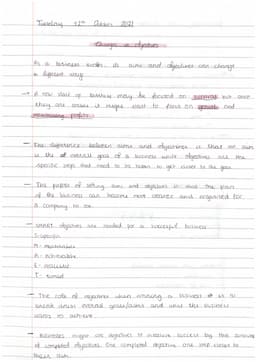 Tuesday 12th October 2021
Changes in objectives
As a business evolves, its aims and objectives can change
in different ways
→ A new start up business may be focused on survival but once
they are known it might start to focus on growth and
maximising profits
- The difference between aims and objectives is that an aim
is the overall goal of a business while objectives are the
specific steps that need to be taken to get closer to the goal
- The purpose of setting aims and objectives is that the plan
of the business can become more detailed and organised for
a company to
- SMART objectives are needed for a successful business
S-specific
M- measurable
A- achievable
R- realistic
T- timed
- The role of objectives when running a business is to
break down overall goals/aims and what the business
wants to achieve
- Businesses might use objectives to measure success by the amount
of completed objectives. One completed objective one step closer to
their aim.